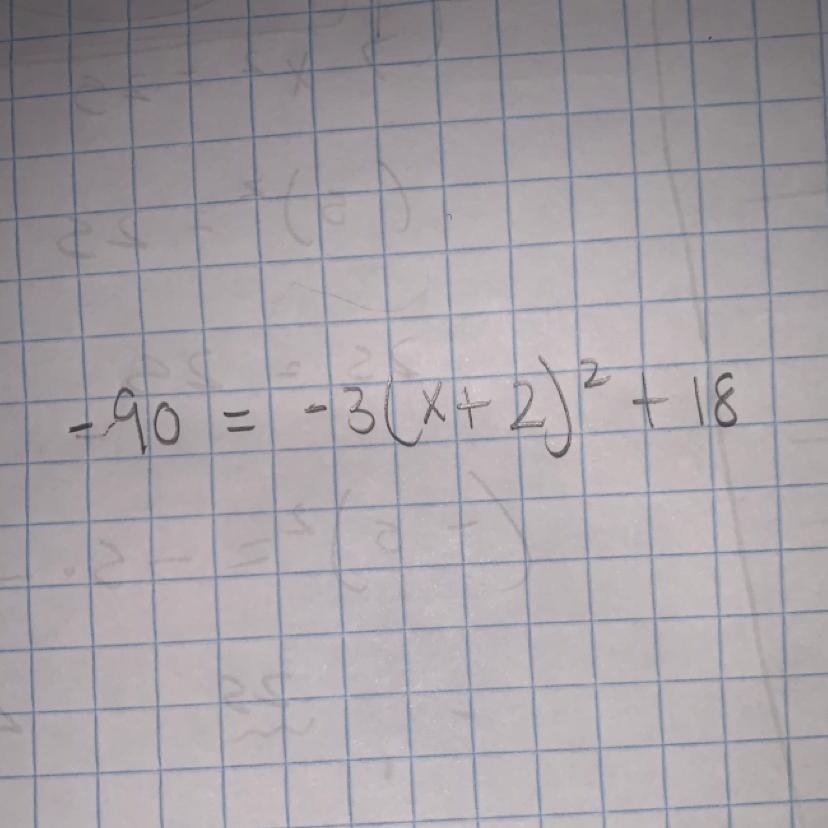 -90 = -3(x+2)² + 18